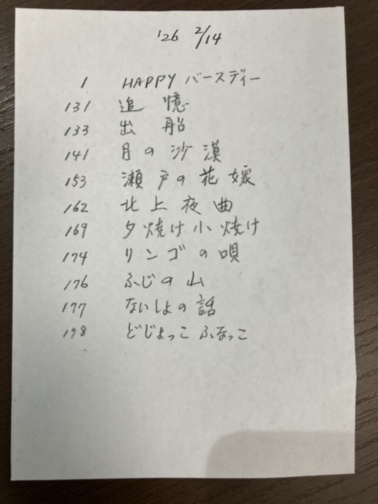 '26 2/14
1 HAPPY バースディー
131 追憶
133 出船
141 月の沙漠
153 瀬戸の花嫁
162 北上夜曲
169 夕焼け小焼け
174 リンゴの唄
176 ふじの山
177 ないしょの話
198 どじょっこふなっこ